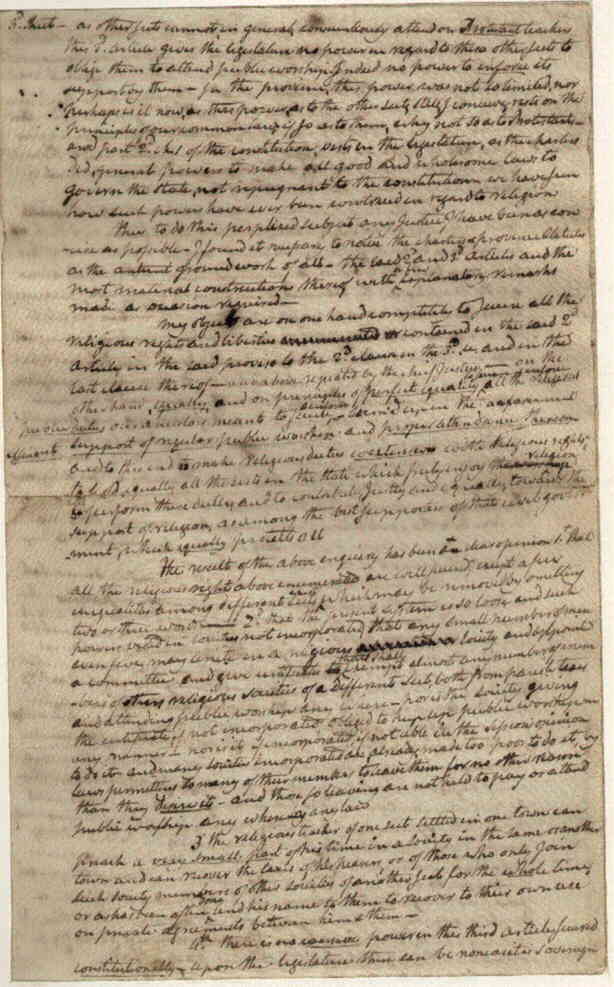 as other sects cannot in general conveniently attend on Protestant teachers
this 3d. article gives the legislature no power in regard to these other sects to
oblige them to attend public worship. Indeed no power to enforce its
support by them - In the province this power was not so limited, nor
perhaps is it now, as this power as to the other sects still I conceive rests on the
principles of our common law & if so as to them, why not so as to Protestants -
and part 2. ch. 1 of the constitution, vests in the legislature, as the charter
did, general powers to make all good and wholesome laws to
govern the State, not repugnant to the constitution we have seen
how such powers have ever been construed in regard to religion
Thus to do this perplexed subject any Justice, I have been as con
cise as possible - I found it necessary to notice the charter & province Articles
as the antient ground work of all - the said 2d. and 3d. Articles and the
most material constructions thereof with a few explanatory remarks
made as occasion required -
My objects are on one hand completely to secure all the
religious rights and liberties contained in the said 2d
Article in the said proviso to the 2d. clause in the 3d. and in the
last clause thereof - as above repeated by the chief Justice - on the
other hand, equally, and on principles of perfect equality, all the religious
duties our ancestors meant to secure in the
support of regular public worship and proper attendance thereon
and to this end to make religious duties coextensive with religious rights;
equally all the sects in the State which fully enjoy religion
to perform these duties and to contribute justly and equally towards the
support of religion, as among the best supporters of that civil govern
ment, which equally protects all
The result of the above enquiry has been a clear opinion 1st. That
all the religious rights above enumerated are well secured, except a few
inequalities among different sects, which may be removed by omitting
two or three words - 2d. That the present system is so loose and such
powers vested in societies not incorporated, that any small number of men
even five, may unite in a religious society and appoint
a committee and give certificates that shall exempt almost any number of mem
bers of other religious societies of a different sect, both from parish taxes
and attending public worship any where - nor is the society giving
the certificate if not incorporated obliged to keep up public worship in
any manner - nor is it if incorporated if not able in the Sessions opinion
to do it - and many societies incorporated are already made too poor to do it, by
laws permitting so many of their members to leave them for no other reason
than they desire it - and those so leaving are not held to pay or attend
public worship any where by any law
3d the religious teacher of one sect settled in one town can
preach a very small part of his time in a society in the same or another
town and can recover the taxes of his hearers or of those who only join
such society members of other societies of another sect for the whole time,
or as has been often done lend his name to them to recover to their own use
on private agreements between him & them -
4th there is no power in this third article secured
constitutionally - upon the legislature there can be none as it is sovereign